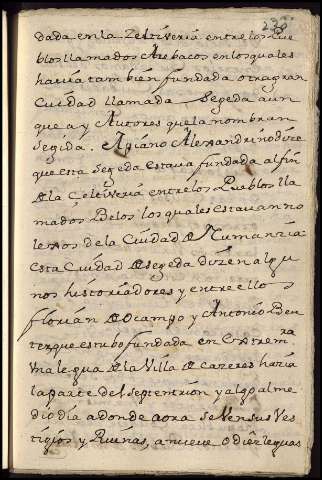 232
dada en la Zeltiveria entre los Pue
blos llamados Arebacos en los quales
havia tambien fundada otra gran
Ciudad llamada Segeda aun
que ay Autores que la nombran
Segida. Apiano Alexandrino dize
que esta Segeda estava fundada al fin
de la Çeltiveria entre los Pueblos lla
mados Belos los quales estavan no
lexos de la Ciudad de Numanzia
esta Ciudad de segeda dizen algu
nos historiadores y entre ellos
florian de Ocampo y Antonio Beu
ter que estubo fundada en Extrem.ra
Una legua de la Villa de Cazeres hazia
la parte del septentrion y algo al me
dio dia adonde aora se Ven sus Ves
tigios y Ruinas, a nueve o diez leguas